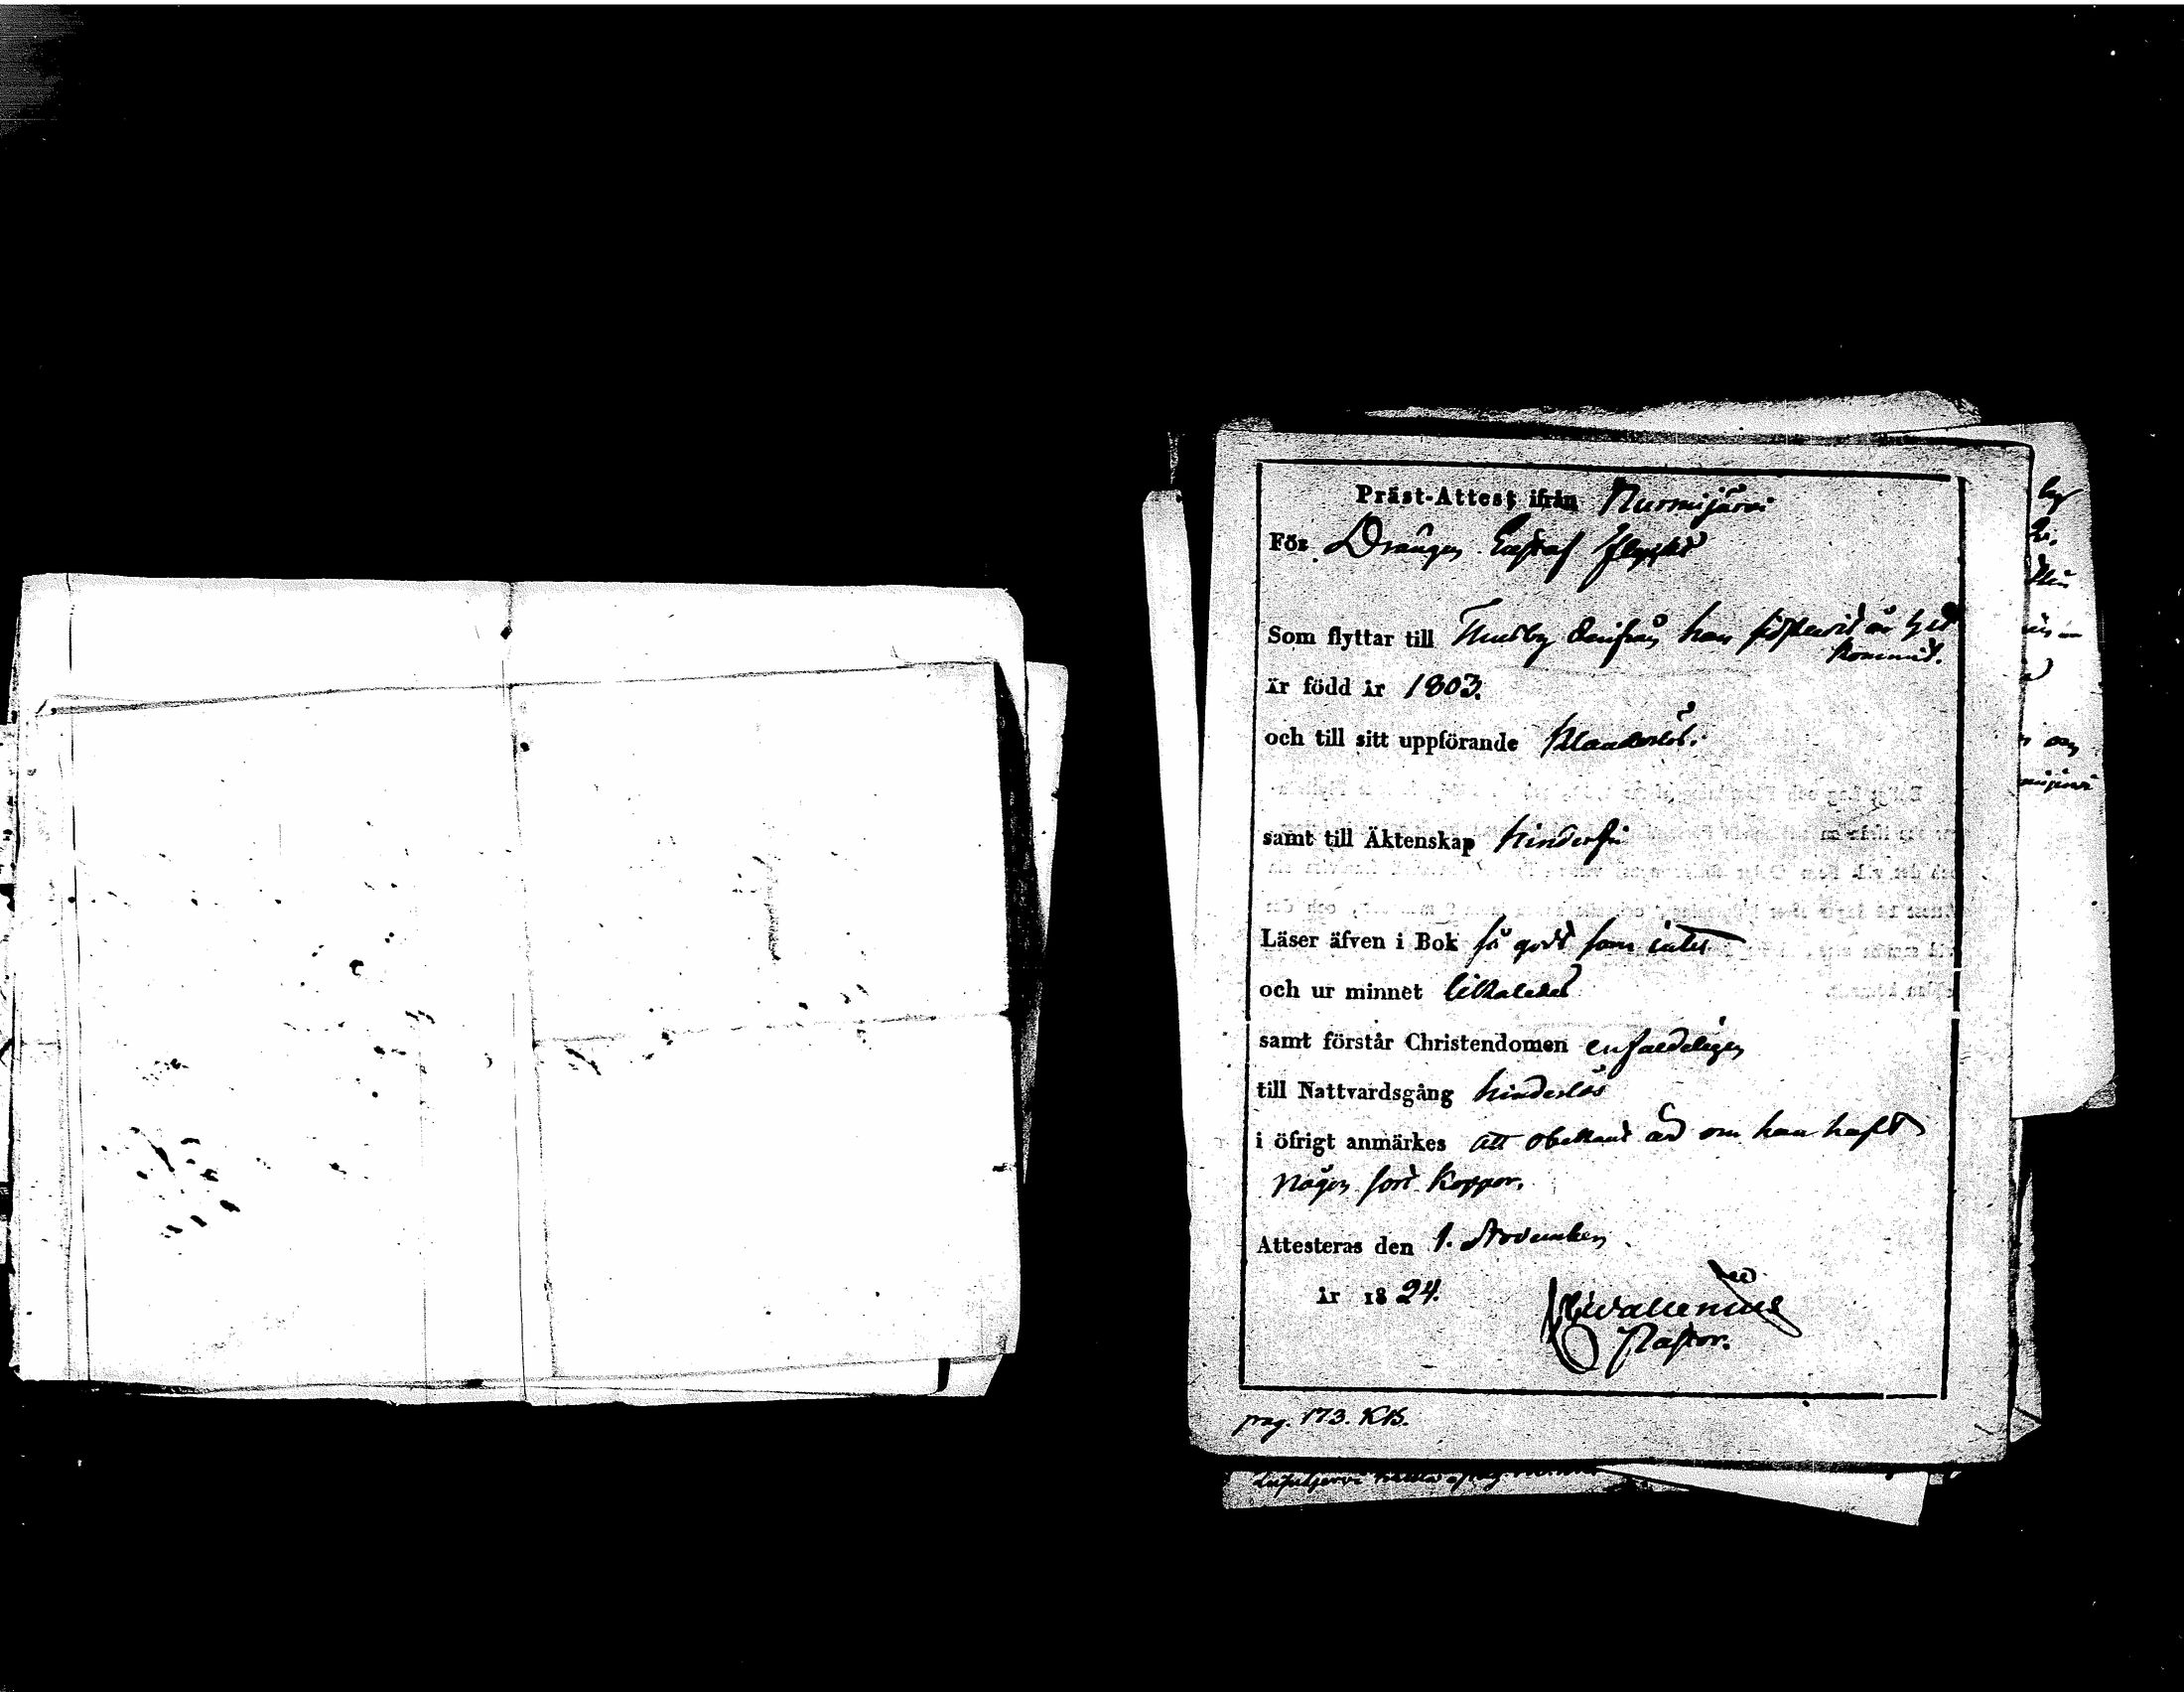 Präst-Attest ifrån Nurmijärvi
För Drängen Gustaf
Som flyttar till Thusby han är hit
kommit.
är född år 1803.
och till sitt uppförande klanderlös.
samt till Äktenskap hinderfri
Läser äfven i Bok så godt som intet
och ur minnet likaledes
samt förstår Christendomen enfaldeligen
till Nattvardsgång hinderlös
i öfrigt anmärkes att obekant är om han haft
någon sort koppor.
Attesteras den 1. November
år 1824.
Pastor.
pag. 173. KB.